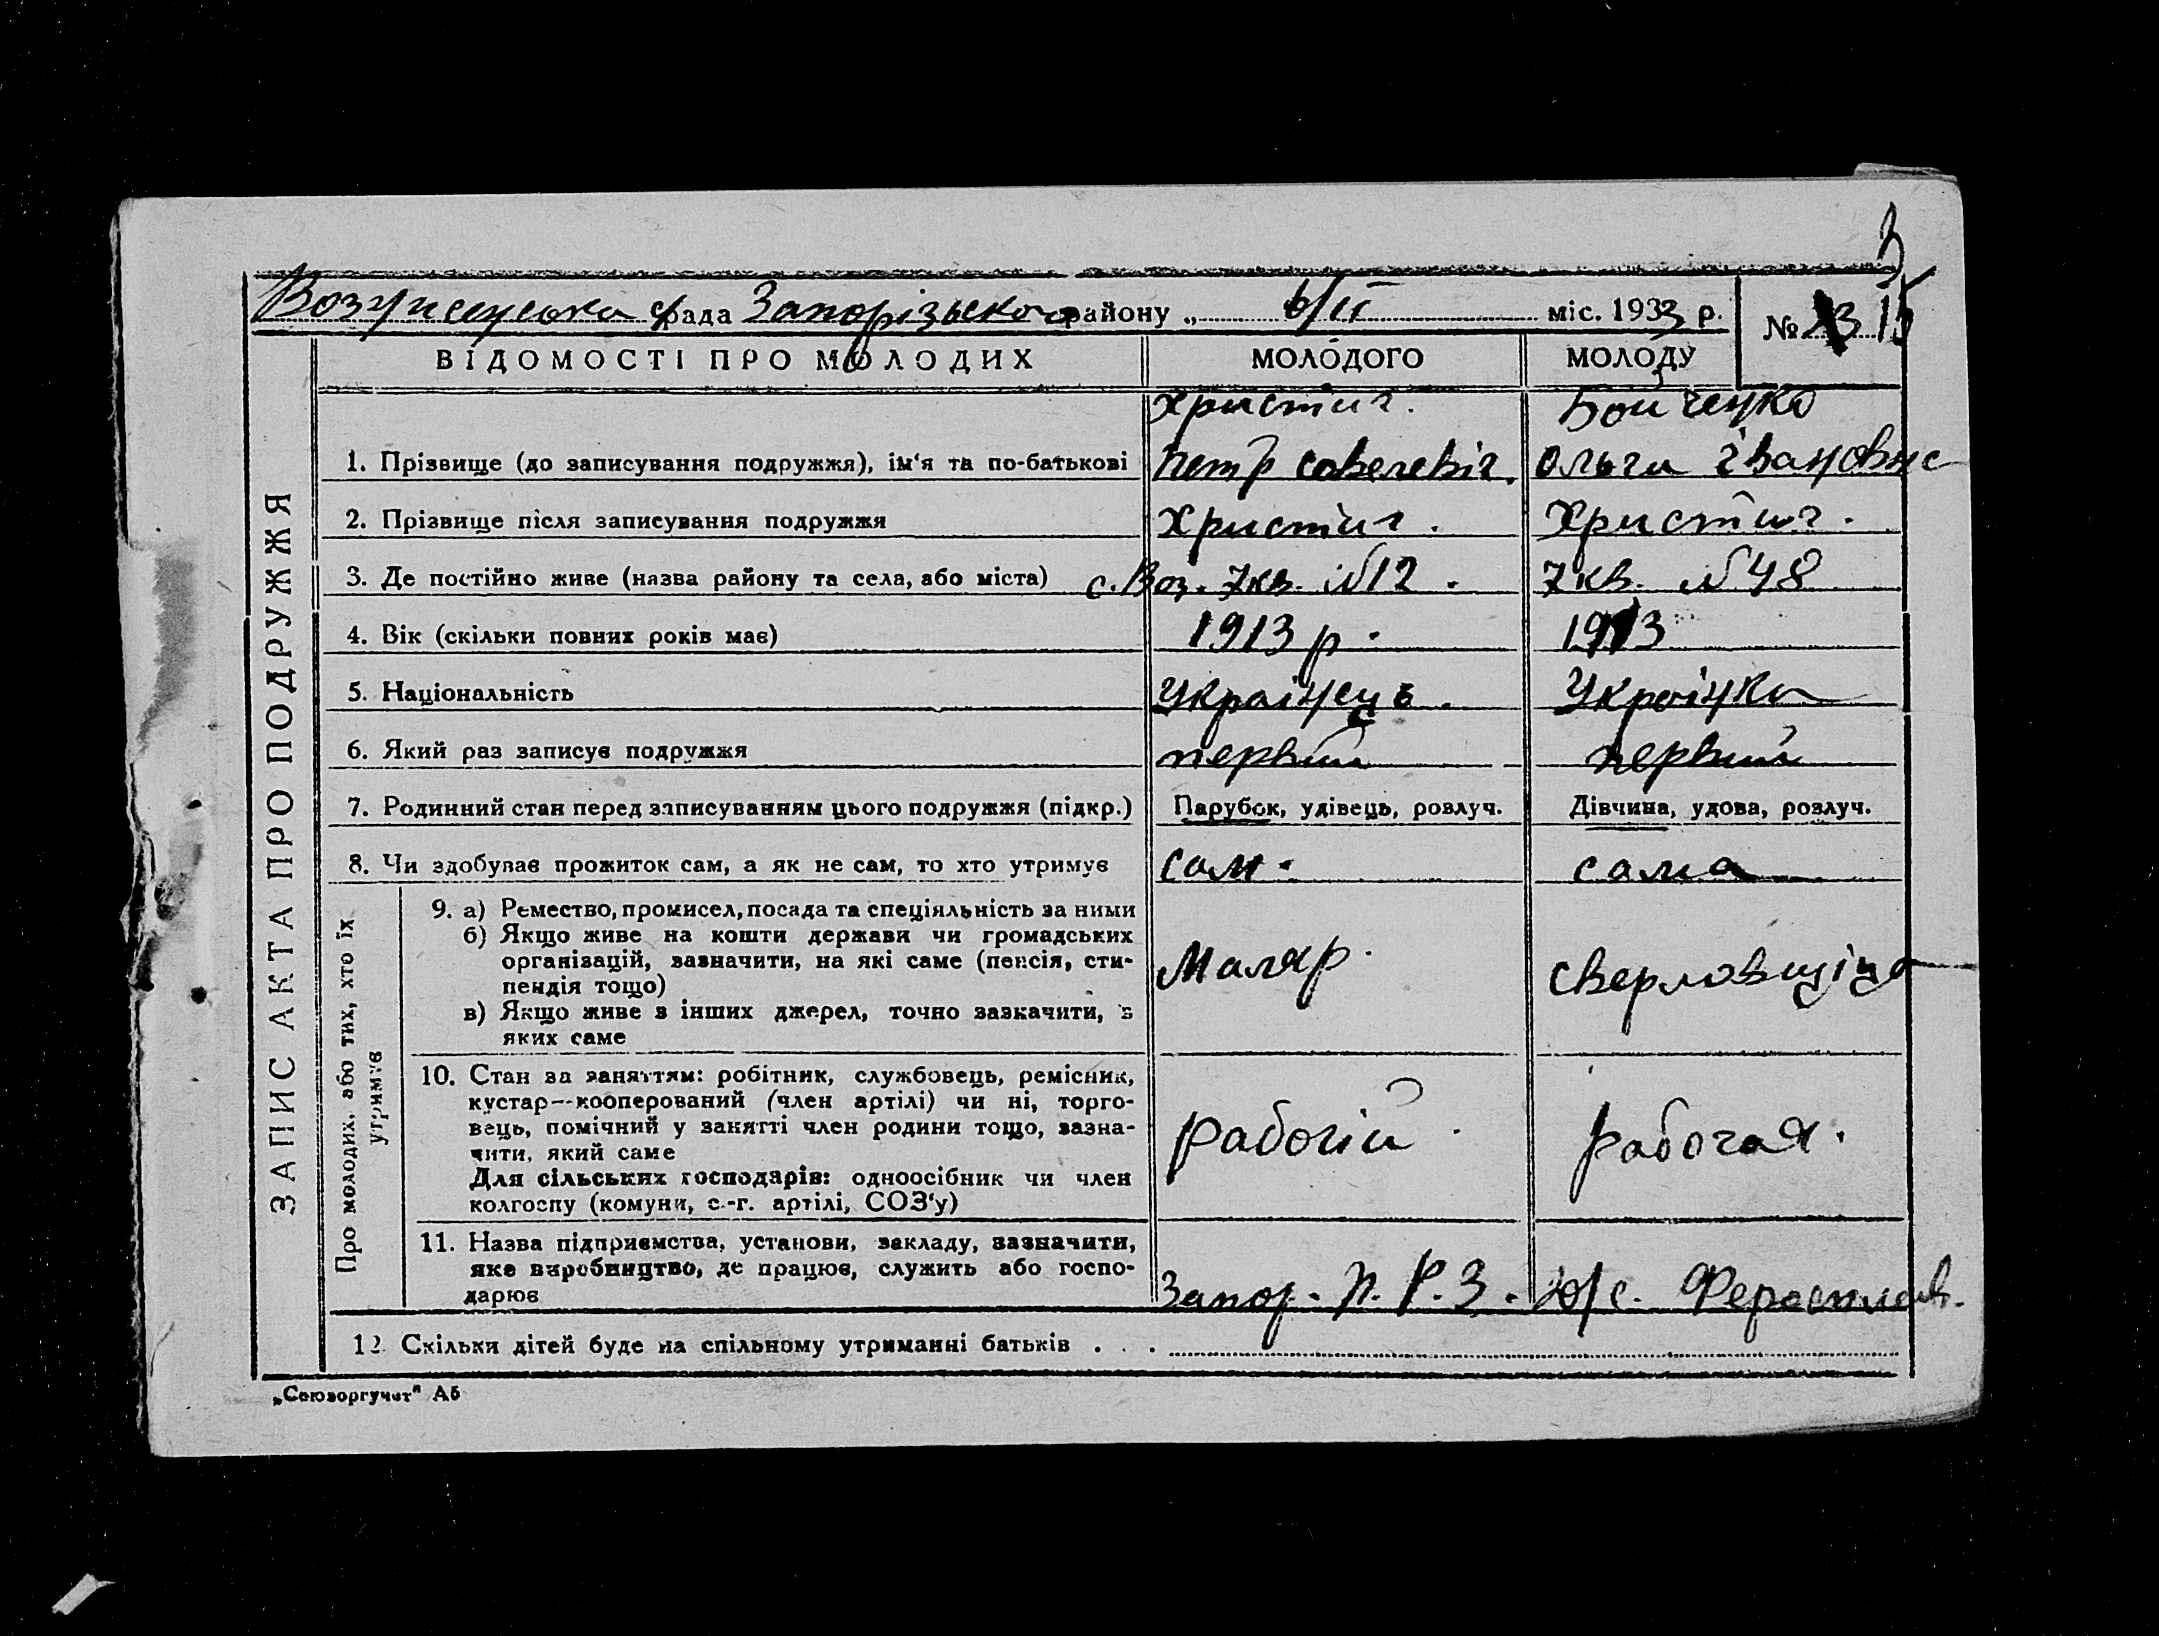 3
Вознисенська с/рада Запорізького району „ 6/II міс. 1933 р.
№ 15
ВІДОМОСТІ ПРО МОЛОДИХ МОЛОДОГО МОЛОДУ
Христич. Бойченко
1. Прізвище (до записування подружжя), ім‘я та по-батькові Петр Савелевіч. Ольга Івановнс
2. Прізвище після записування подружжя Христич. Христич.
3. Де постійно живе (назва району та села, або міста) с. Воз. 7 кв. №12. 7 кв. №48
4. Вік (скільки повних років має) 1913 р. 1913
5. Національність Украінець. Украінка
6. Який раз записує подружжя первий первий
7. Родинний стан перед записуванням цього подружжя (підкр.) Парубок, удівець, розлуч. Дівчина, удова, розлуч.
8. Чи здобував прожиток сам, а як не сам, то хто утримує Сам. сама
9. а) Ремество, промисел, посада та спеціяльність за ними
б) Якщо живе на кошти держави чи громадських
організацій, зазначити, на які саме (пенсія, сти-
пендія тощо)
в) Якщо живе з інших джерел, точно зазкачити, з
яких саме
Маляр. сверловщіца
10. Стан за заняттям: робітник, службовець, ремісник,
кустар—кооперований (член артілі) чи ні, торго-
вець, помічний у занятті член родини тощо, зазна-
чити, який саме
Для сільських господарів: одноосібник чи член
колгоспу (комуни, с.-г. артілі, СОЗ‘у)
рабочій. рабочая.
11. Назва підприємства, установи, закладу, зазначити,
яке виробництво, де працює, служить або госпо-
дарює
Запор. П. Р. З. Феросплав.
12. Скільки дітей буде на спільному утриманні батьків . . .
ЗАПИС АКТА ПРО ПОДРУЖЖЯ
Про молодих, або тих, хто їх
утримує
„Союзоргучет" А5